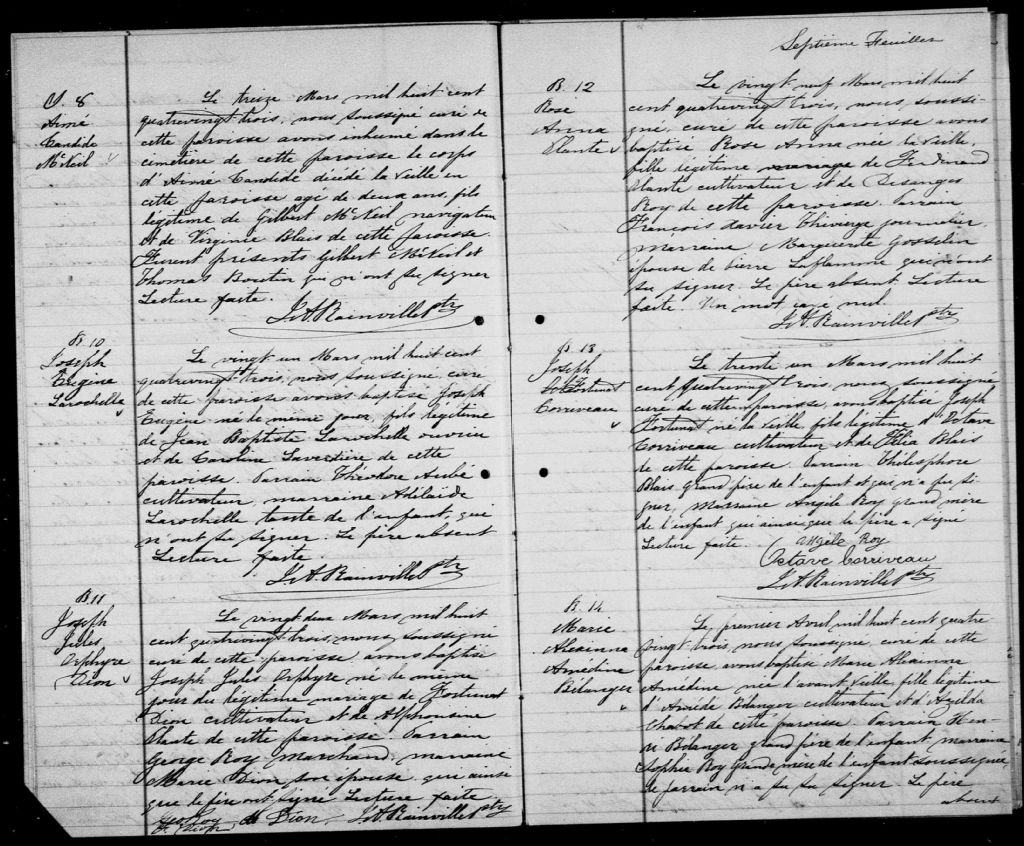 S. 8
Aimé
Candide
McNeil
Le treize Mars mil huit cent
quatrevingt trois, nous soussigné curé de
cette paroisse avons inhumé dans le
cimetière de cette paroisse le corps
d'Aimé Candide décédé la veille en
cette paroisse agé de deux ans, fils
légitime de Gilbert McNeil navigateur
et de Virginie Blais de cette paroisse.
Furent présents Gilbert McNeil et
Thomas Boutin qui n'ont su signer
Lecture faite.
J.A. Rainville Ptre
B. 10
Joseph
Eugène
Larochelle
Le vingt un Mars mil huit cent
quatrevingt trois, nous soussigné curé
de cette paroisse avons baptisé Joseph
Eugène né le même jour, fils légitime
de Jean Baptiste Larochelle ouvrier
et de Caroline Laverdière de cette
paroisse. Parrain Théodore Aubé
cultivateur, marraine Adélaide
Larochelle tante de l'enfant, qui
n'ont su signer. Le père absent
Lecture faite.
J.A. Rainville Ptre
B. 11
Joseph
Jules
Orphyre
Dion
Le vingt deux Mars mil huit
cent quatrevingt trois, nous soussigné
curé de cette paroisse avons baptisé
Joseph Jules Orphyre né le même
jour du légitime mariage de Fortunat
Dion cultivateur et de Alphonsine
Plante de cette paroisse Parrain
George Roy Marchand, marraine
Marie Dion son épouse qui ainsi
que le père ont signé Lecture faite.
Geo Roy
F. Dion
Dion
J.A. Rainville Ptre
Septième Feuillet
B. 12
Rose
Anna
Plante
Le vingt neuf Mars mil huit
cent quatrevingt trois, nous, soussi-
gné, curé de cette paroisse avons
baptisé Rose Anna née la veille,
fille légitime mariage de Ferdinand
Plante cultivateur et de Desanges
Roy de cette paroisse. Parrain
François Xavier Thivierge journalier,
marraine Marguerite Gosselin
épouse de Pierre Laflamme qui n'ont
su signer. Le père absent. Lecture
faite. Un mot rayé nul.
J.A. Rainville Ptre
B. 13
Joseph
Fortunat
Corriveau
Le trente un Mars mil huit
cent quatrevingt trois, nous soussigné
curé de cette paroisse, avons baptisé Joseph
Fortunat né la veille fils légitime d'Octave
Corriveau cultivateur et de Blais
de cette paroisse. Parrain Thélesphore
Blais grand père de l'enfant et qui n'a pu si-
gner, Marraine Angèle Roy grand mère
de l'enfant qui ainsi que le père a signé
Lecture faite.
Angèle Roy
Octave Corriveau
J.A. Rainville Ptre
B. 14
Marie
Alexinna
Amédine
Bélanger
Le premier Avril mil huit cent quatre
vingt trois, nous soussigné curé de cette
paroisse, avons baptisé Marie Alexinna
Amédine née l'avant veille, fille légitime
d' Bélanger cultivateur et d'Exilda
Chabot de cette paroisse Parrain Hen-
ri Bélanger grand père de l'enfant marraine
Sophie Roy grande mère de l'enfant soussignée,
le parrain n'a pu su signer. Le père
absent